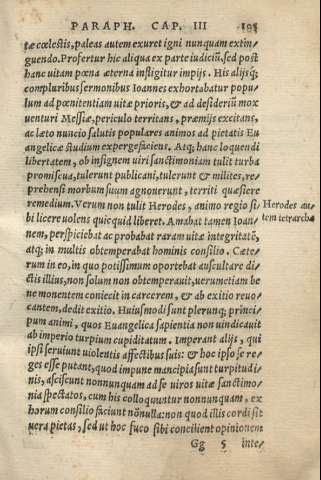 PARAPH. CAP. III 105
tæ cœlestis, paleas autem exuret igni nunquam extin/
guendo. Profertur hic aliqua ex parte iudiciũ, sed post
hanc uitam pœna æterna infligitur impijs. His alijsq́;
compluribus sermonibus Ioannes exhortabatur popu/
lum ad pœnitentiam uitæ prioris, & ad desideriũ mox
uenturi Messiæ, periculo territans, præmijs excitans,
ac læto nuncio salutis populares animos ad pietatis Eu
angelicæ studium expergefaciens. Atq; hanc loquendi
libertatem, ob insignem uiri sanctimoniam tulit turba
promiscua, tulerunt publicani, tulerunt & milites, re/
prehensi morbum suum agnouerunt, territi quæsiere
remedium. Verum non tulit Herodes, animo regio si/
bi licere uolens quicquid liberet. Amabat tamen Ioan/
nem, perspiciebat ac probabat raram uitæ integritatẽ,
atq; in multis obtemperabat hominis consilio. Cæte/
rum in eo, in quo potissimum oportebat auscultare di/
ctis illius, non solum non obtemperauit, uerumetiam be
ne monentem coniecit in carcerem, & ab exitio reuo/
cantem, dedit exitio. Huiusmodi sunt plerunq; princi/
pum animi, quos Euangelica sapientia non uindicauit
ab imperio turpium cupiditatum. Imperant alijs, qui
ipsi seruiunt uiolentis affectibus suis: & hoc ipso se re/
ges esse putant, quod impune mancipia sunt turpitudi/
nis, asciscunt nonnunquam ad se uiros uitæ sanctimo/
nia spectatos, cum his colloquuntur nonnunquam, ex
horum consilio faciunt nõnulla: non quod illis cordi sit
uera pietas, sed ut hoc fuco sibi concilient opinionem
Gg 5 inte/
Herodes au/
tem tetrarcha